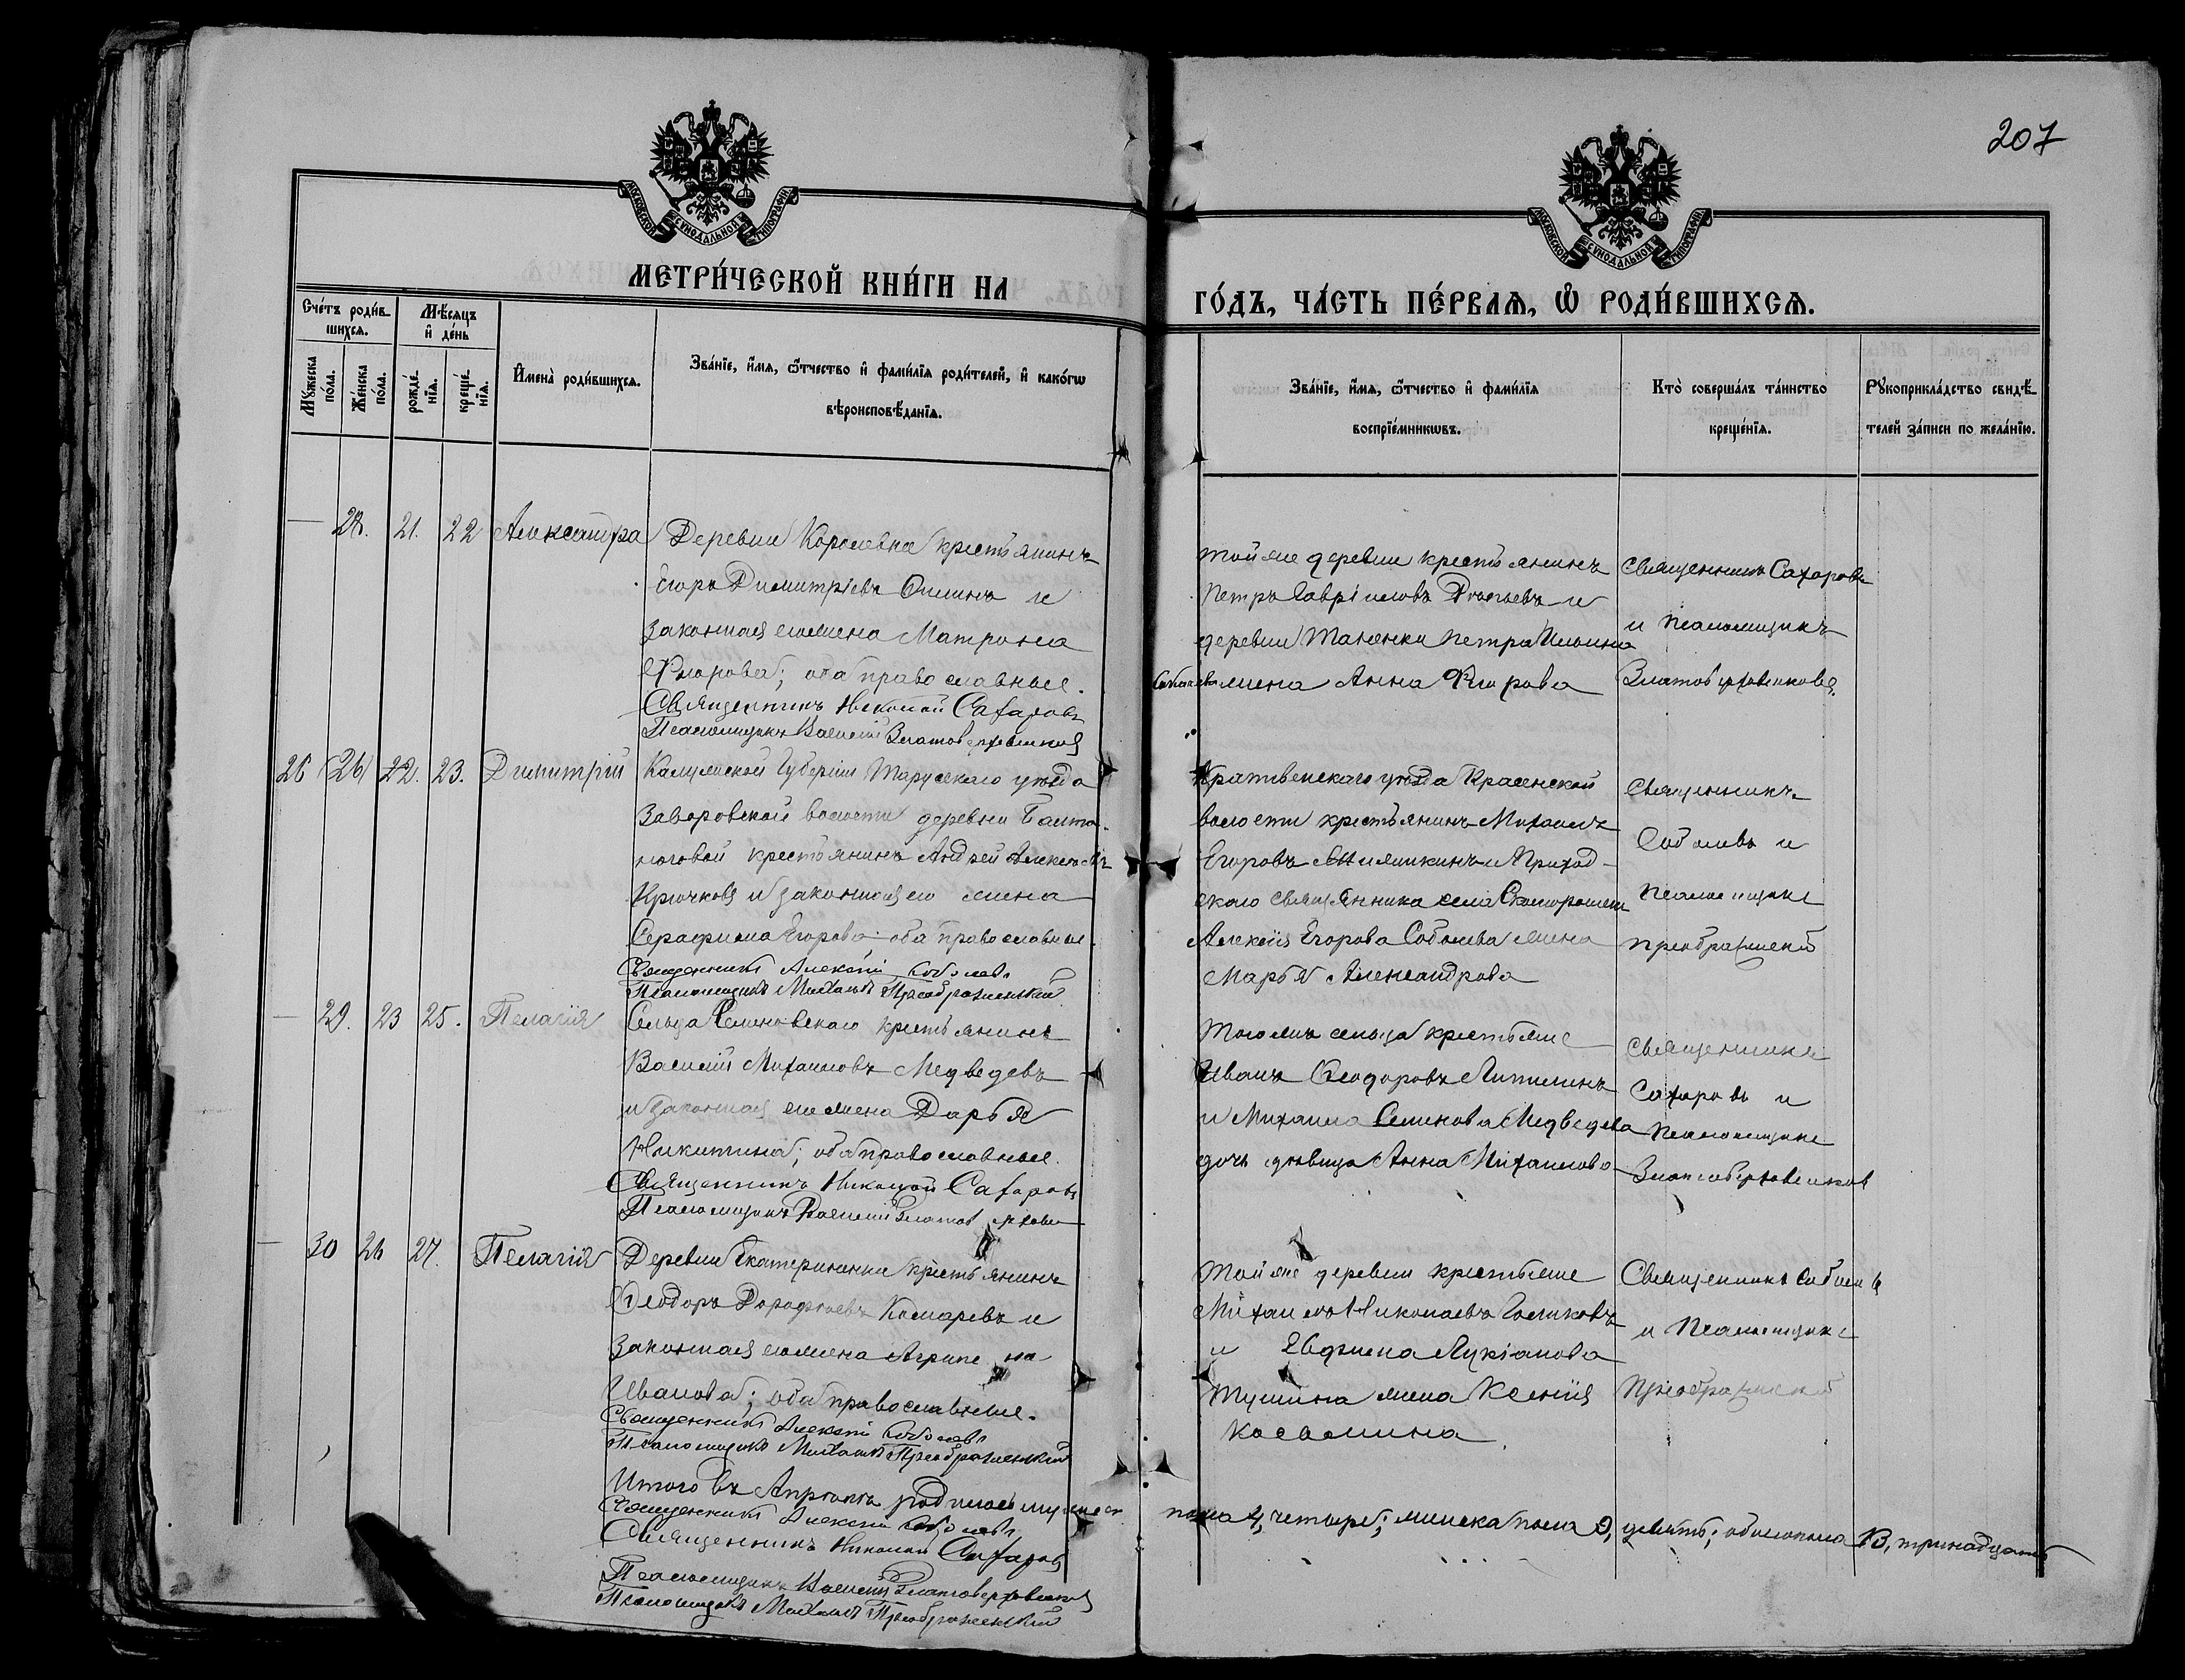 207
МОСКОВСКОЙ СѴНОДАЛЬНОЙ ТИПОГРАФІИ
МОСКОВСКОЙ СѴНОДАЛЬНОЙ ТИПОГРАФІИ
МЕТРИ́ЧЕСКОЙ КНИ́ГИ НА
ГО́ДЪ, ЧА́СТЬ ПЕ́РВАѦ, Ѽ РОДИ́ВШИХСѦ.
Сче́тъ роди́в-
шихсѧ.
Мѣ́сѧцъ
и҆ де́нь
Мꙋ́жеска
по́ла.
Же́нска
по́ла.
рожде́-
нїѧ.
креще́-
нїѧ.
И҆мена̀ роди́вшихсѧ.
Зва́нїе, и҆́мѧ, ѻ҆́тчество и҆ фами́лїѧ роди́телей, и҆ како́гѡ
вѣроисповѣ́данїѧ.
Зва́нїе, и҆́мѧ, ѻ҆́тчество и҆ фами́лїѧ
воспрїе́мникѡвъ.
Кто̀ соверша́лъ та́инство
креще́нїѧ.
Рꙋкоприкла́дство свидѣ́-
телей за́писи по жела́нїю.
— 28. 21. 22 Александра Деревни крестьянинъ
Егоръ Димитріевъ и
законная его жена Матрона
Ѳеодорова; оба православные.
Священникъ Николай Сахаровъ
Псаломщикъ Василій Златоверховниковъ
Той же деревни крестьянинъ
Петръ Гавріиловъ и
деревни Петра Ильина
жена Анна
Священникъ Сахаровъ
и псаломщикъ
Златоверховниковъ.
26 (26) 22. 23. Димитрій Калужской Губерніи Тарусскаго уѣзда
Заворовской волости деревни
крестьянинъ Андрей Алексѣевъ
Крючковъ и законная его жена
Серафима Егорова; оба православные.
Священникъ Алексій Соболевъ
Псаломщикъ Михаилъ Преображенскій
уѣзда
волости крестьянинъ Михаилъ
Егоровъ и Приход-
скаго священника села
Алексія Егорова Соболева жена
Марья Александрова
Священникъ
Соболевъ и
псаломщикъ
Преображенскій
— 29. 23 25. Пелагія Сельца Семеновскаго крестьянинъ
Василій Михаиловъ Медведевъ
и законная его жена Дарья
Никитина; оба православные.
Священникъ Николай Сахаровъ
Псаломщикъ Василій
Того жъ сельца крестьяне
Иванъ Ѳеодоровъ
и Михаила Семенова Медведева
дочь дѣвица Анна Михаилова
Священникъ
Сахаровъ и
псаломщикъ
Златоверховниковъ
— 30 26 27. Пелагія Деревни Екатериновки крестьянинъ
Ѳеодоръ Дорофеевъ Комаревъ и
законная его жена Агрипина
Иванова; оба православные.
Священникъ Алексій Соболевъ
Псаломщикъ Михаилъ Преображенскій
Той же деревни крестьяне
Михаилъ Николаевъ Голиковъ
и Евфима Лукіанова
жена Ксенія
Косьмина.
Священникъ Соболевъ
и псаломщикъ
Преображенскій
Итого въ Апрѣлѣ родилось мужеска
пола 4, четыре; женска пола 9, девять; обоего пола 13, тринадцать
Священникъ Алексій Соболевъ
Священникъ Николай Сахаровъ
Псаломщикъ Василій Златоверховниковъ
Псаломщикъ Михаилъ Преображенскій